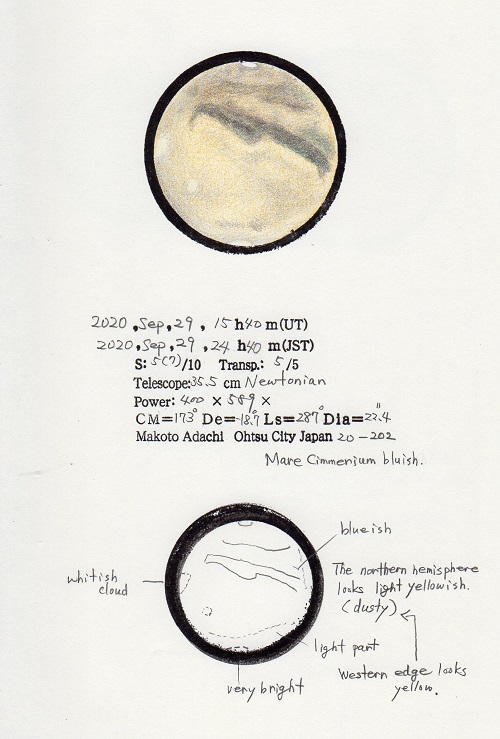 2020, Sep, 29, 15 h 40 m(UT)
2020, Sep, 29, 24 h 40 m(JST)
S: 5(7)/10 Transp.: 5/5
Telescope: 35.5 cm Newtonian
Power: 400 × 589 ×
CM=173° De=-18.9° Ls=287° Dia=22.4"
Makoto Adachi Ohtsu City Japan 20-202
Mare Cimmenium bluish.
blueish
The northern hemisphere
looks light yellowish.
(dusty)
whitish
cloud
light part
Western edge looks
yellow.
very bright